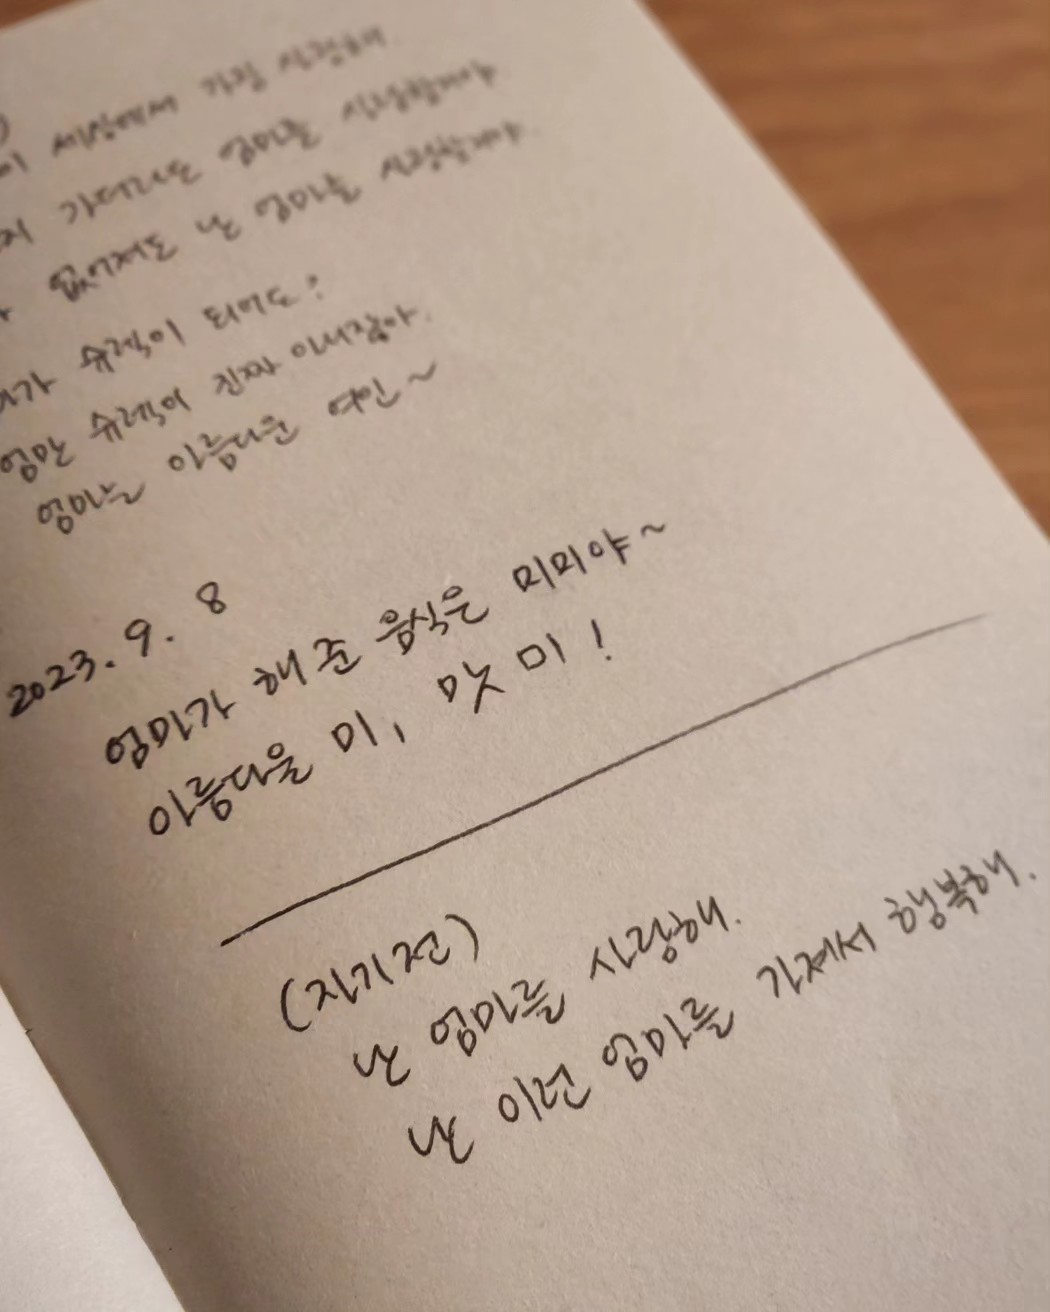 세상에서 가장 사랑해
가더라도 엄마를 사랑할거야
없어져도 난 엄마를 사랑할거야
슈렉이 되어도?
엄만 슈렉이 진짜 아니잖아.
엄마는 아름다운 여인~
2023. 9. 8
엄마가 해 준 음식은 미미야~
아름다울 미, 맛 미!
(자기전)
난 엄마를 사랑해.
난 이런 엄마를 가져서 행복해.